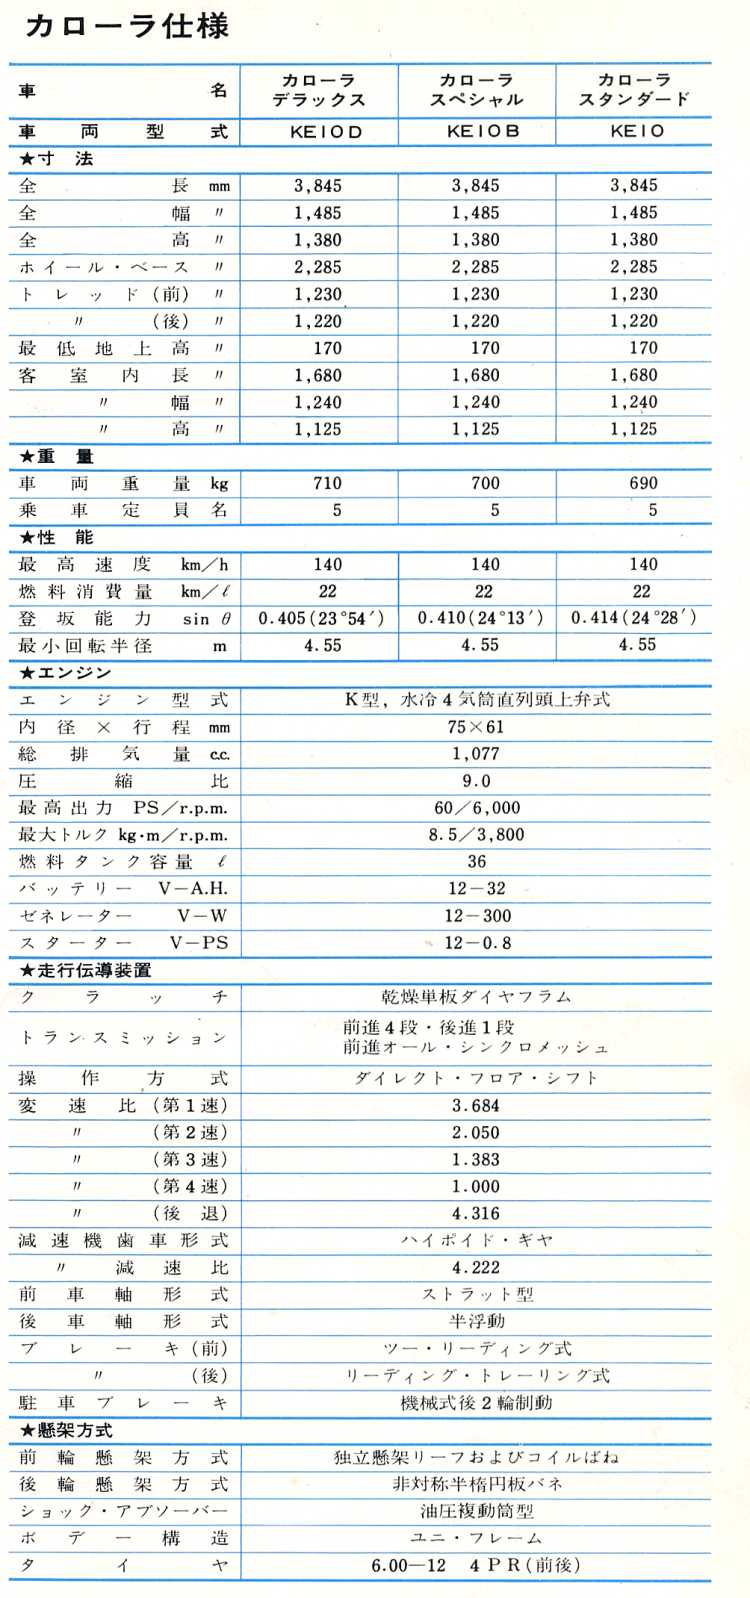 カローラ仕様
車名 カローラ デラックス カローラ スペシャル カローラ スタンダード
車両型式 KE10D KE10B KE10
★寸法
全長 mm 3,845 3,845 3,845
全幅 〃 1,485 1,485 1,485
全高 〃 1,380 1,380 1,380
ホイール・ベース 〃 2,285 2,285 2,285
トレッド(前) 〃 1,230 1,230 1,230
〃 (後) 〃 1,220 1,220 1,220
最低地上高 〃 170 170 170
客室内長 〃 1,680 1,680 1,680
〃 幅 〃 1,240 1,240 1,240
〃 高 〃 1,125 1,125 1,125
★重量
車両重量 kg 710 700 690
乗車定員名 5 5 5
★性能
最高速度 km/h 140 140 140
燃料消費量 km/ℓ 22 22 22
登坂能力 sin θ 0.405(23°54′) 0.410(24°13′) 0.414(24°28′)
最小回転半径 m 4.55 4.55 4.55
★エンジン
エンジン型式 K型, 水冷4気筒直列頭上弁式
内径×行程 mm 75×61
総排気量 c.c. 1,077
圧縮比 9.0
最高出力 PS/r.p.m. 60/6,000
最大トルク kg·m/r.p.m. 8.5/3,800
燃料タンク容量 ℓ 36
バッテリー V−A.H. 12−32
ゼネレーター V−W 12−300
スターター V−PS 12−0.8
★走行伝導装置
クラッチ 乾燥単板ダイヤフラム
トランスミッション 前進4段・後進1段
前進オール・シンクロメッシュ
操作方式 ダイレクト・フロア・シフト
変速比(第1速) 3.684
〃 (第2速) 2.050
〃 (第3速) 1.383
〃 (第4速) 1.000
〃 (後退) 4.316
減速機歯車形式 ハイポイド・ギヤ
〃 減速比 4.222
前車軸形式 ストラット型
後車軸形式 半浮動
ブレーキ(前) ツー・リーディング式
〃 (後) リーディング・トレーリング式
駐車ブレーキ 機械式後2輪制動
★懸架方式
前輪懸架方式 独立懸架リーフおよびコイルばね
後輪懸架方式 非対称半楕円板バネ
ショック・アブソーバー 油圧複動筒型
ボデー構造 ユニ・フレーム
タイヤ 6.00—12 4PR(前後)